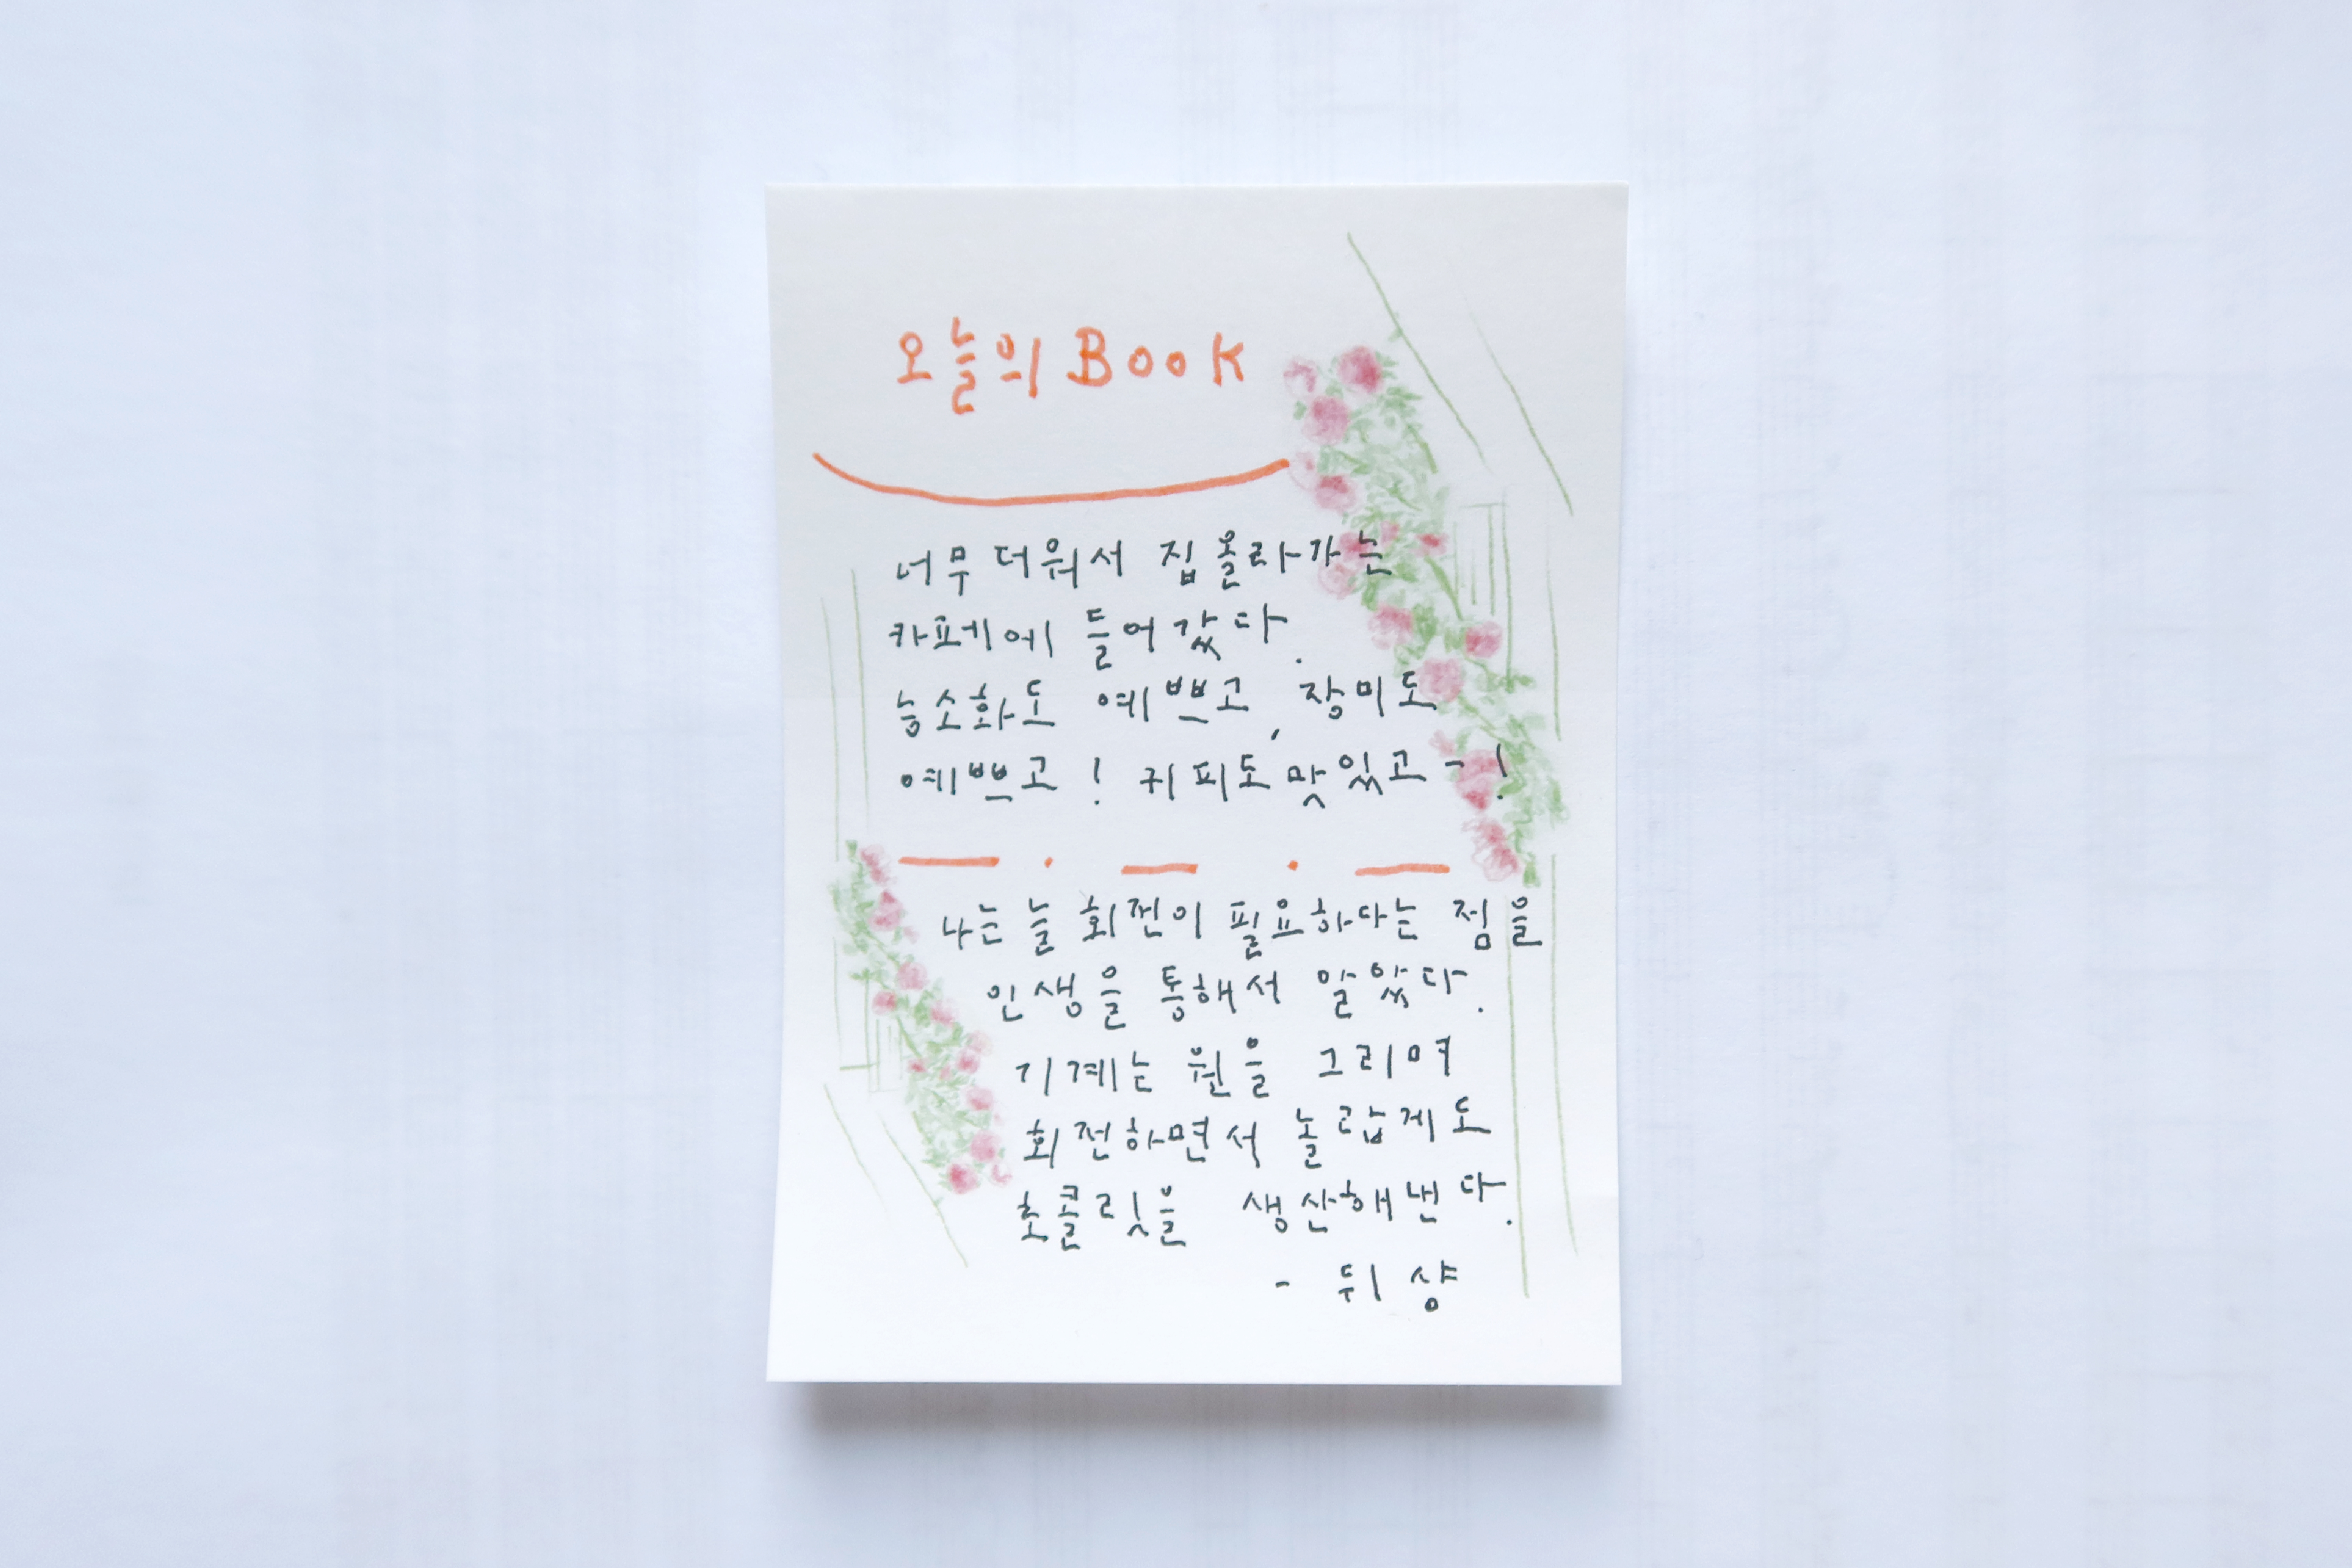 오늘의 BOOK
너무 더워서 집 올라가는
카페에 들어갔다.
능소화도 예쁘고, 장미도
예쁘고! 커피도 맛있고-!
나는 늘 회전이 필요하다는 점을
인생을 통해서 알았다.
기계는 원을 그리며
회전하면서 놀랍게도
초콜릿을 생산해낸다.
- 뒤샹